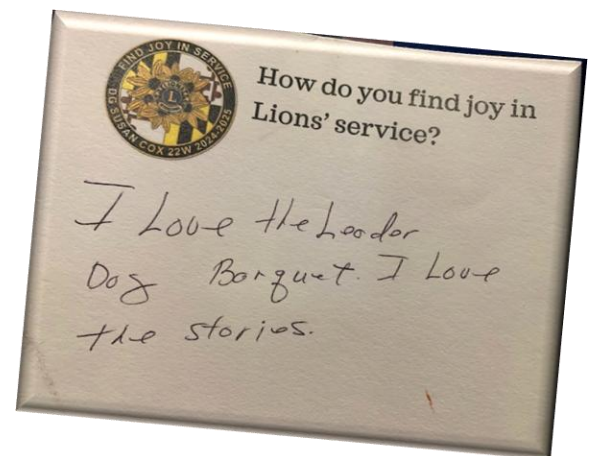 FIND JOY IN SERVICE
L
DG SUSAN COX 22W 2024-2025
How do you find joy in
Lions' service?
I Love the Leader
Dog Banquet. I Love
the stories.